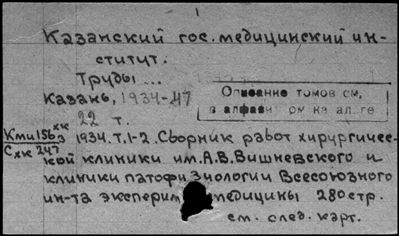 Казанский гос. медицинский ин-
ститут.
Труды ...
Казань, 1934-47
Описание томов см.
в алфавитном каталоге
22 т.
Кми 156 хк 3
Схк 247
1934. Т.1-2. Сборник работ хирургичес-
кой клиники им. А.В. Вишневского и
клиники патофизиологии Всесоюзного
ин-та эксперим медицины 280стр.
см. след. карт.